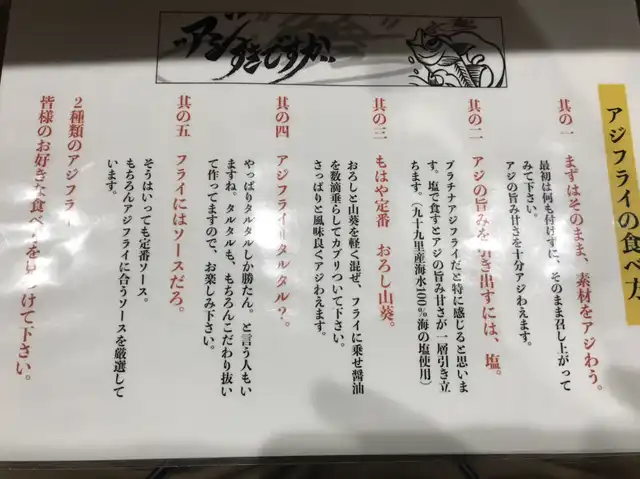 アジすきですか。
アジフライの食べ方
其の一 まずはそのまま、素材をアジわう。
最初は何も付けずに、そのまま召し上がって
みて下さい。
アジの旨み甘さを十分アジわえます。
其の二 アジの旨みを引き出すには、塩。
プラチナアジフライだと特に感じると思いま
す。塩で食すとアジの旨み甘さが一層引き立
ちます。(九十九里産海水100%海の塩使用)
其の三 もはや定番 おろし山葵。
おろしと山葵を軽く混ぜ、フライに乗せ醤油
を数滴垂らしてカブりついて下さい。
さっぱりと風味良くアジわえます。
其の四 アジフライ=タルタル?。
やっぱりタルタルしか勝たん。と言う人もい
ますね。タルタルも、もちろんこだわり抜い
て作ってますので、お楽しみ下さい。
其の五 フライにはソースだろ。
そうはいっても定番ソース。
もちろんアジフライに合うソースを厳選して
います。
2種類のアジフライ
皆様のお好きな食べ方を見つけて下さい。